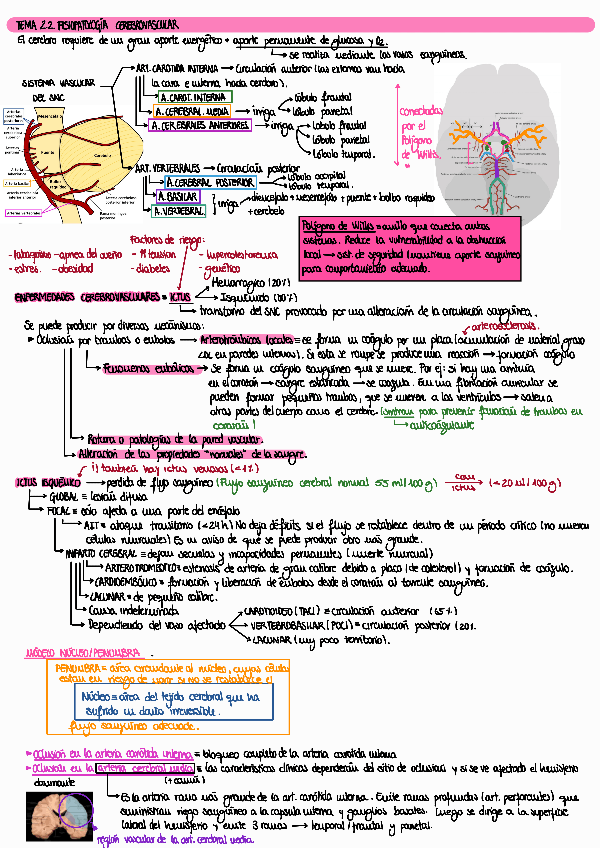 TEMA 22. FISIOPATOLOGÍA CEREBROVASCULAR
El cerebro requiere de un gran aporte energético + aporte permanente de glucosa y O2.
→ se realiza mediante los vasos sanguíneos.
SISTEMA VASCULAR DEL SNC
ART. CAROTIDA INTERNA → Circulación anterior (las externas van hacia
la cara e interna, hacia cerebro).
A. CAROT. INTERNA
A. CEREBRAL MEDIA → irriga
lóbulo frontal
lóbulo parietal
A. CEREBRALES ANTERIORES → irriga
lóbulo frontal
lóbulo parietal
lóbulo temporal.
conectadas
por el
Polígono
de Willis.
ART. VERTEBRALES → Circulación posterior
A. CEREBRAL POSTERIOR
lóbulo occipital
lóbulo temporal.
A. BASILAR
A. VERTEBRAL
irriga
diencéfalo + mesencéfalo + puente + bulbo raquídeo
+ cerebelo
Mesencéfalo
Puente
Cerebelo
Bulbo raquídeo
Arteria basilar
Arterias vertebrales
Polígono de Willis = anillo que conecta ambos
sistemas. Reduce la vulnerabilidad a la obstrucción
local → sist. de seguridad (mantiene aporte sanguíneo
para comportamiento adecuado.
Factores de riesgo:
- tabaquismo - apnea del sueño - ↑ tension - hipercolesterolemia
- estrés. - obesidad - diabetes - genética
ENFERMEDADES CEREBROVASCULARES = ICTUS
Hemorrágico (20%)
Isquémico (80%)
→ trastorno del SNC provocado por una alteración de la circulación sanguínea.
Se puede producir por diversos mecanismos:
arteriosclerosis.
Oclusión por trombos o émbolos → Aterotrombóticos locales = se forma un coágulo por una placa (acumulación de material graso
LDL en paredes internas). Si esta se rompe se produce una reacción → formación coágulo
Fenómenos embólicos → Se forma un coágulo sanguíneo que se mueve. Por ej: si hay una arritmia
en el corazón → sangre estancada → se coagula. En una fibrilación auricular se
pueden formar pequeños trombos, que se mueven a los ventrículos → salen a
otras partes del cuerpo como el cerebro. (sintrom para prevenir formación de trombos en
corazón)
→ anticoagulante
Rotura o patologías de la pared vascular.
Alteración de las propiedades "normales" de la sangre.
¡) también hay ictus venosos (<1%)
ICTUS ISQUÉMICO → perdida de flujo sanguíneo (Flujo sanguíneo cerebral normal 55 ml/100 g) con ictus → (< 20 ml/100 g)
GLOBAL = lesión difusa
FOCAL = solo afecta a una parte del encéfalo
AIT = ataque transitorio (<24h) No deja déficits, si el flujo se restablece dentro de un periodo crítico (no mueren
células neuronales) Es un aviso de que se puede producir otro más grande.
INFARTO CEREBRAL = dejan secuelas y incapacidades permanentes (muerte neuronal)
ATEROTROMBÓTICO = estenosis de arteria de gran calibre debido a placa (de colesterol) y formación de coágulo.
CARDIOEMBÓLICO = formación y liberación de émbolos desde el corazón al torrente sanguíneo.
LACUNAR = de pequeño calibre.
Causa indeterminada
Dependiendo del vaso afectado
CAROTIDEO (TACI) = circulación anterior (65%)
VERTEBROBASILAR (POCI) = circulación posterior (20%
LACUNAR (muy poco territorio).
MODELO NÚCLEO/PENUMBRA.
PENUMBRA = área circundante al núcleo, cuyas células
están en riesgo de morir si no se restablece el
Núcleo = área del tejido cerebral que ha
sufrido un daño irreversible.
flujo sanguíneo adecuado.
Oclusión en la arteria carótida interna = bloqueo completo de la arteria carótida interna
Oclusión en la arteria cerebral media = las características clínicas dependerán del sitio de oclusión y si se ve afectado el hemisferio
dominante (+ común)
Es la arteria rama más grande de la art. carótida interna. Emite ramas profundas (art. perforantes) que
suministran riego sanguíneo a la capsula interna y ganglios basales. Luego se dirige a la superficie
lateral del hemisferio y emite 3 ramas → temporal/frontal y parietal.
región vascular de la art. cerebral media.